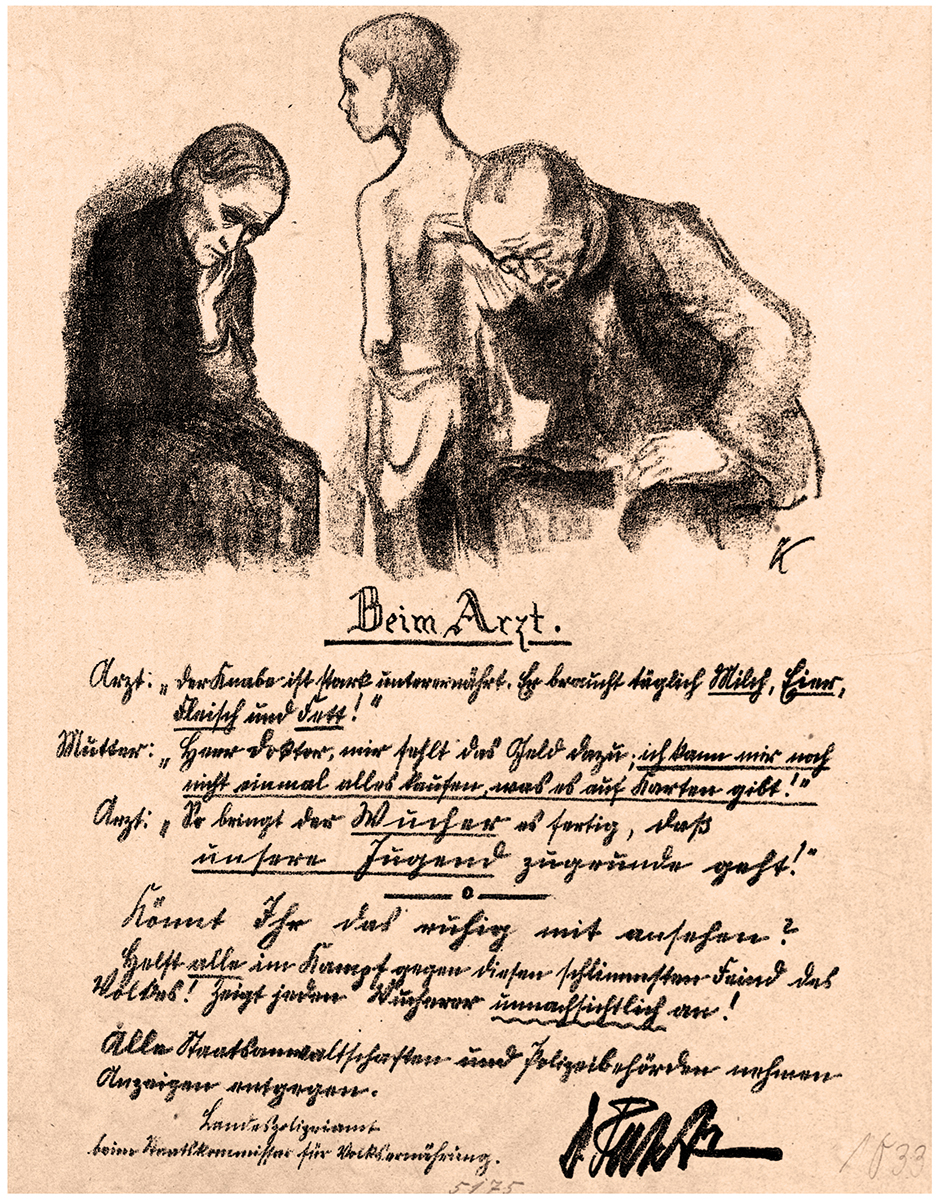 K
Beim Arzt.
Arzt: „Der Knabe ist stark unterernährt. Er braucht täglich Milch, Eier,
Fleisch und Fett!“
Mutter: „Herr Doktor, mir fehlt das Geld dazu; ich kann mir noch
nicht einmal alles kaufen, was es auf Karten gibt!“
Arzt: „So bringt der Wucher es fertig, daß
unsere Jugend zugrunde geht!“
Könnt Ihr das ruhig mit ansehen?
Helft alle im Kampf gegen diesen schlimmsten Feind des
Volkes! Zeigt jeden Wucherer unnachsichtlich an!
Alle Staatsanwaltschaften und Polizeibehörden nehmen
Anzeigen entgegen.
Landespolizeiamt
beim Staatskommissar für Volksernährung.
5175